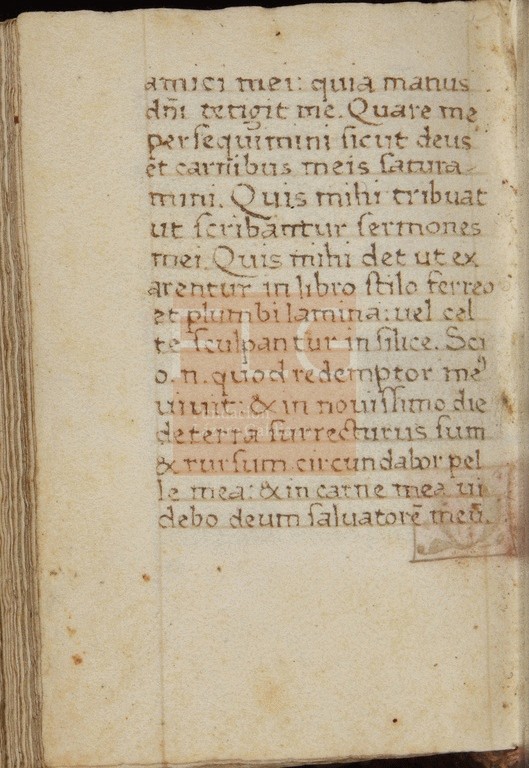 amici mei: quia manus
dñi tetigit me. Quare me
persequimini sicut deus
et carnibus meis satura-
mini. Quis mihi tribuat
ut scribantur sermones
mei. Quis mihi det ut ex
arentur in libro stilo ferreo
et plumbi lamina: uel cel
te sculpantur in silice. Sci
o. n. quod redemptor me⁹
uiuit: & in nouissimo die
de terra surrecturus sum
& rursum circundabor pel
le mea: & in carne mea ui
debo deum saluatorē meū.